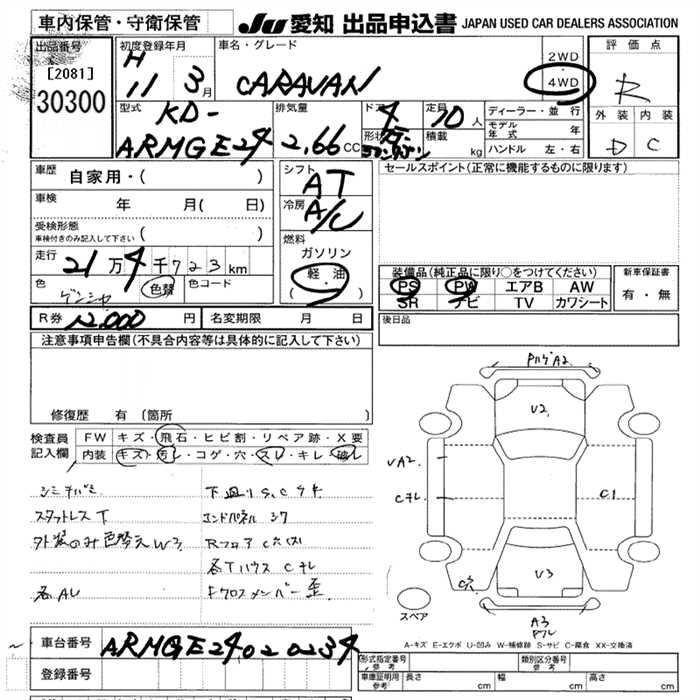 車内保管・守衛保管
JU 愛知 出品申込書 JAPAN USED CAR DEALERS ASSOCIATION
出品番号
[2081]
30300
初度登録年月
H 11 3月
車名・グレード
CARAVAN
2WD
・
4WD
評価点
R
外装 内装
D C
型式
KD-
ARMGE24
排気量
2.66CC
ドア
4
形状
定員
10人
積載
kg
ディーラー・並行
モデル年式 年
ハンドル 左・右
車歴
自家用・( )
車検
年 月( 日)
受検形態
車検付きのみ記入して下さい
( )
走行
21万4千723km
色
ゲンシャ
色替
色コード
シフト
AT
冷房
A/C
燃料
ガソリン
軽油
( ・ )
セールスポイント(正常に機能するものに限ります)
装備品(純正品に限り○をつけてください)
PS PW エアB AW
SR ナビ TV カワシート
新車保証書
有・無
R券 12,000円
名変期限 月 日
後日品
注意事項申告欄(不具合内容等は具体的に記入して下さい)
修復歴 有 〔箇所
検査員
記入欄
FW キズ・飛石・ヒビ割・リペア跡・X要
内装 キズ・汚レ・コゲ・穴・スレ・キレ・破レ
シミ チバミ
スタットレス T
外装のみ色替え W3
各AU
下廻りS,C
エンドパネル
Rフロア C
各Tハウス C
クロスメンバー歪
A2
V2
VA2
C
C1
V3
C穴
A3
スペア
A-キズ E-エクボ U-凹み W-補修跡 S-サビ C-腐食 XX-交換済
車台番号
ARMGE24020234
登録番号
形式指定番号
参考
類別区分番号
参考
車庫証明用
参考
長さ cm
幅 cm
高さ cm